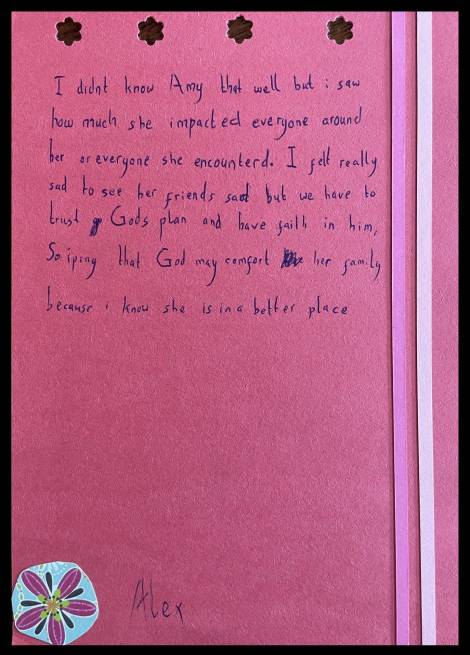 I didnt know Amy that well but i saw
how much she impacted everyone around
her or everyone she encounterd. I felt really
sad to see her friends sad but we have to
trust Gods plan and have faith in him,
So iping that God may comfort her family
because i know she is in a better place
Alex